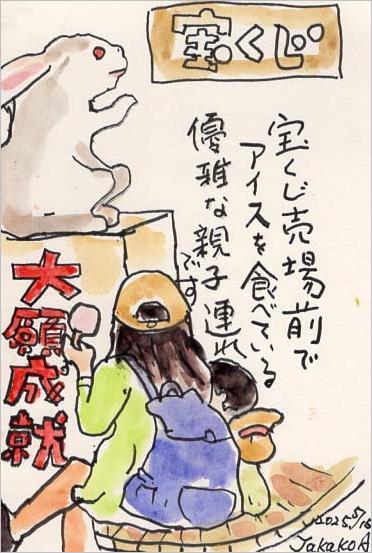 宝くじ
宝くじ売場前で
アイスを食べている
優雅な親子連れ
です
大願成就
2025 5/16
JakakoA